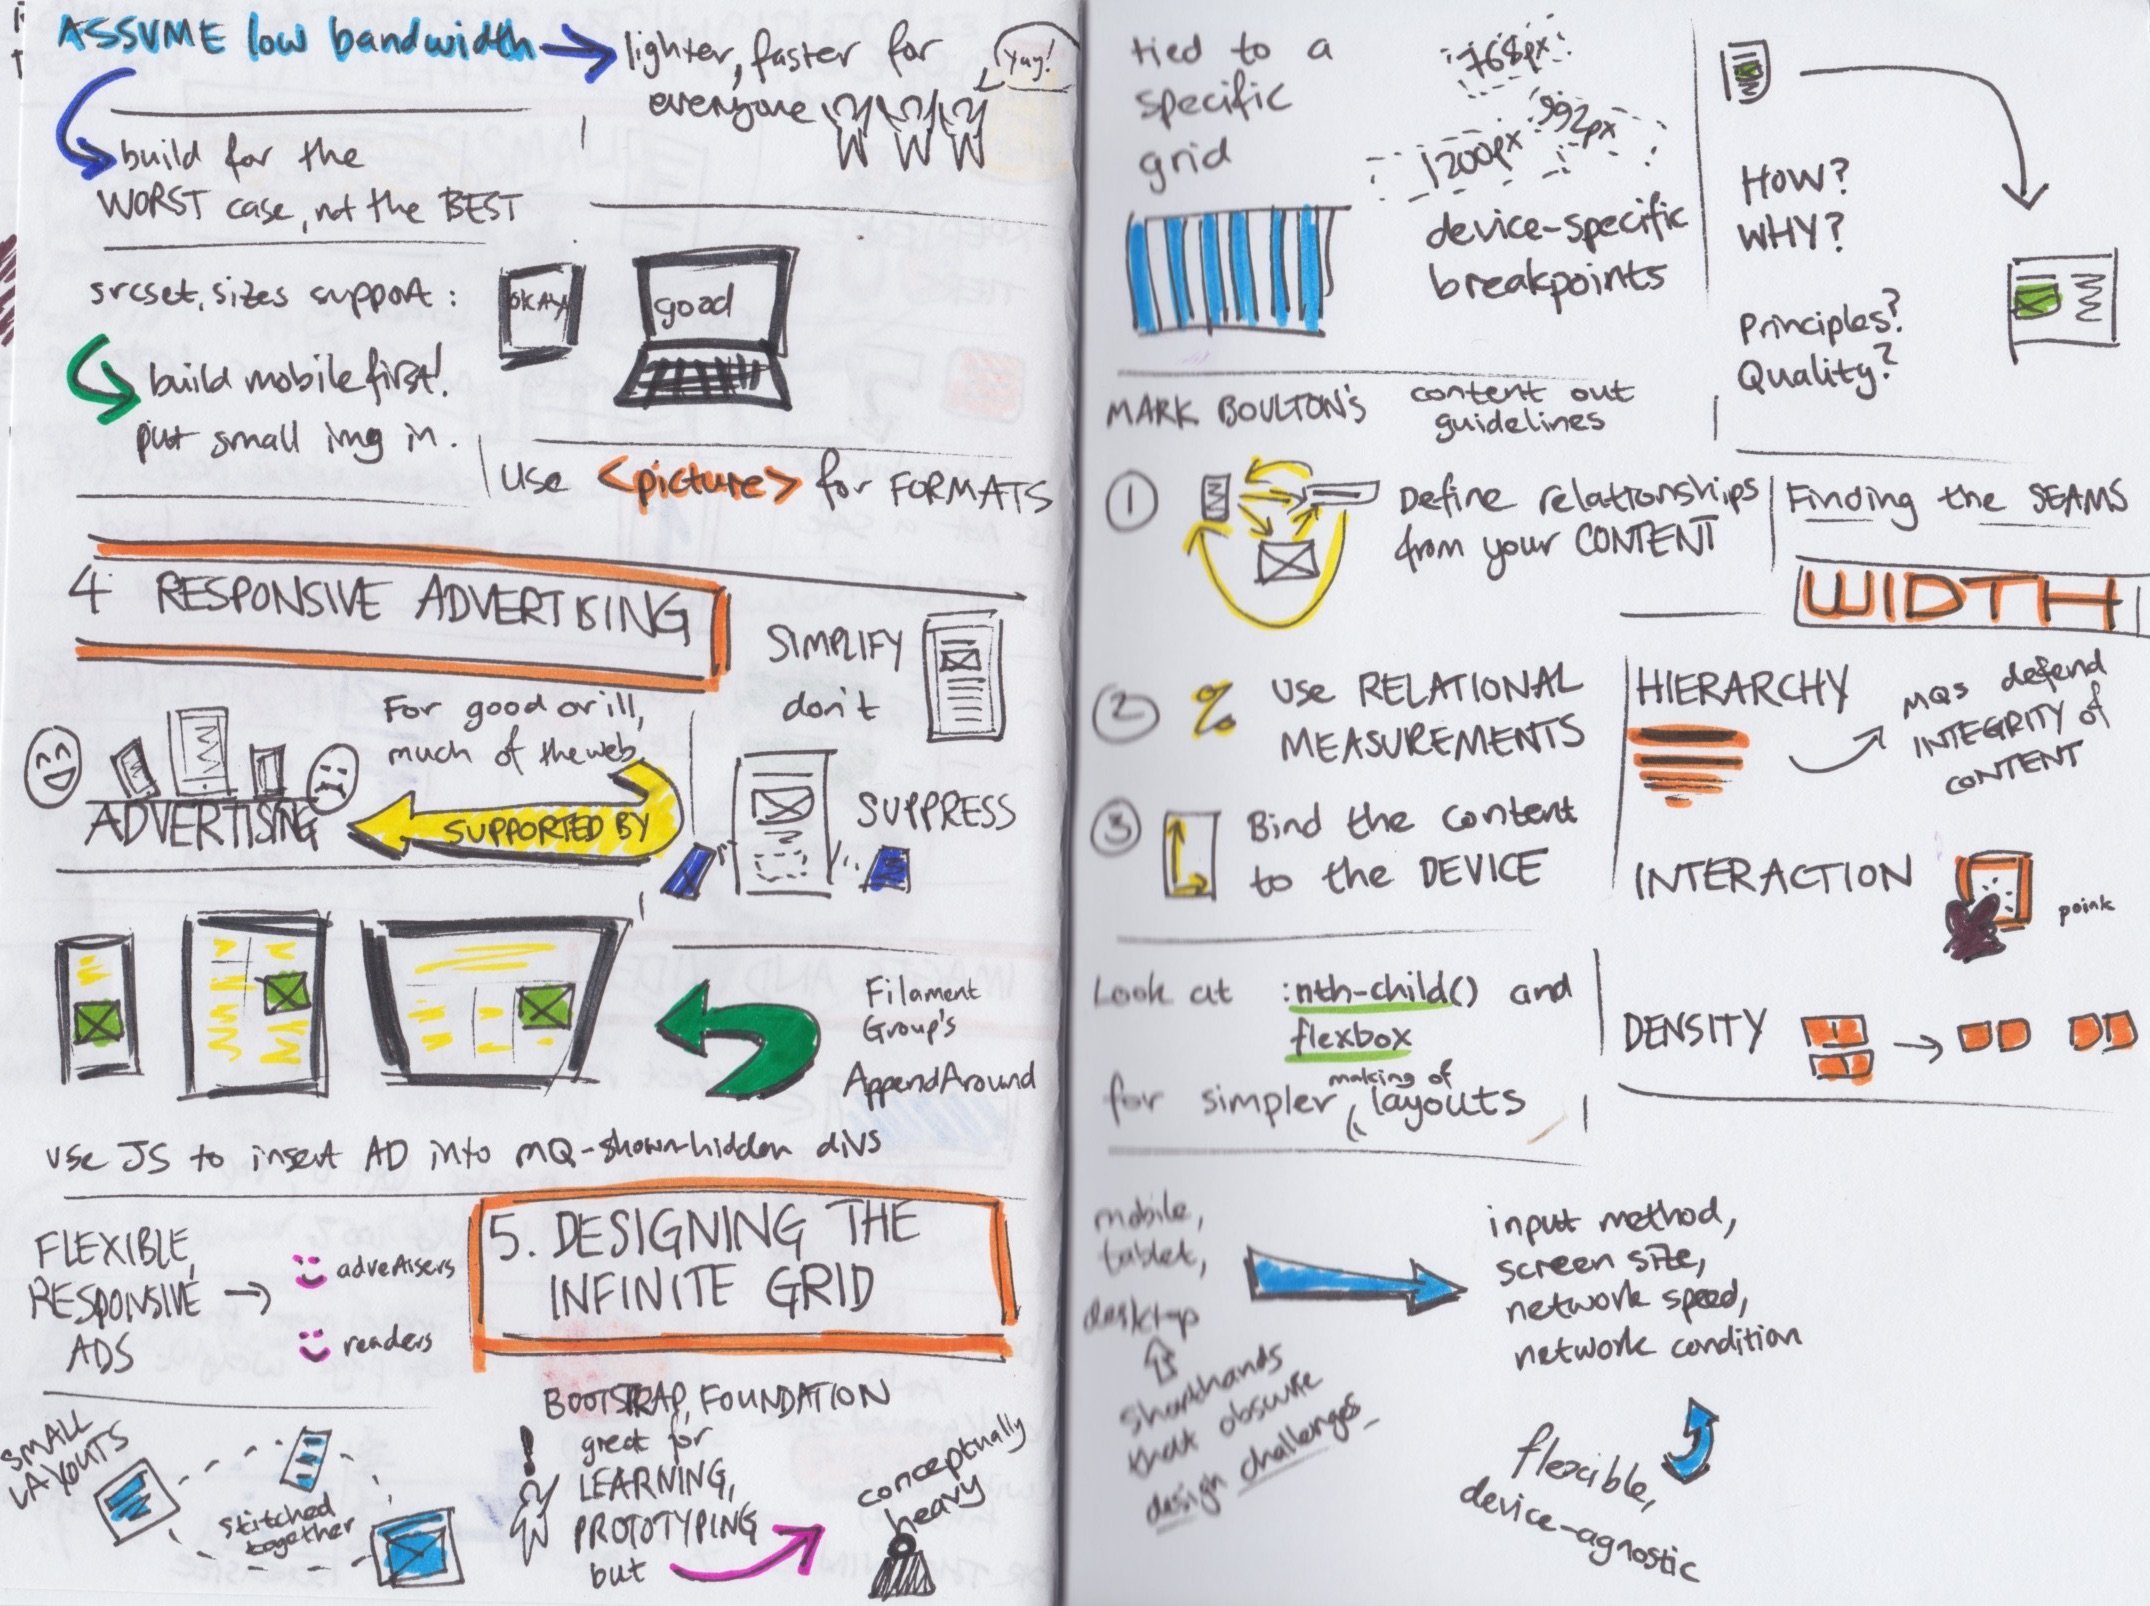 ASSUME low bandwidth
lighter, faster for
everyone
Yay!
build for the
WORST case, not the BEST
srcset, sizes support:
build mobile first!
put small img in.
OKAY
good
use <picture> for FORMATS
4 RESPONSIVE ADVERTISING
For good or ill,
much of the web
SUPPORTED BY
ADVERTISING
SIMPLIFY
don't
SUPPRESS
Filament
Group's
AppendAround
use JS to insert AD into MQ-shown-hidden divs
FLEXIBLE,
RESPONSIVE
ADS
advertisers
readers
5. DESIGNING THE
INFINITE GRID
SMALL
LAYOUTS
stitched
together
BOOTSTRAP, FOUNDATION
great for
LEARNING,
PROTOTYPING
but
conceptually
heavy
tied to a
specific
grid
768px
992px
1200px
device-specific
breakpoints
HOW?
WHY?
Principles?
Quality?
MARK BOULTON'S content out
guidelines
1 Define relationships
from your CONTENT
2 % USE RELATIONAL
MEASUREMENTS
3 Bind the content
to the DEVICE
Look at :nth-child() and
flexbox
making of
for simpler layouts
Finding the SEAMS
WIDTH
HIERARCHY
MQs defend
INTEGRITY of
CONTENT
INTERACTION
poink
DENSITY
mobile,
tablet,
desktop
shorthands
that obscure
design challenges
input method,
screen size,
network speed,
network condition
flexible,
device-agnostic